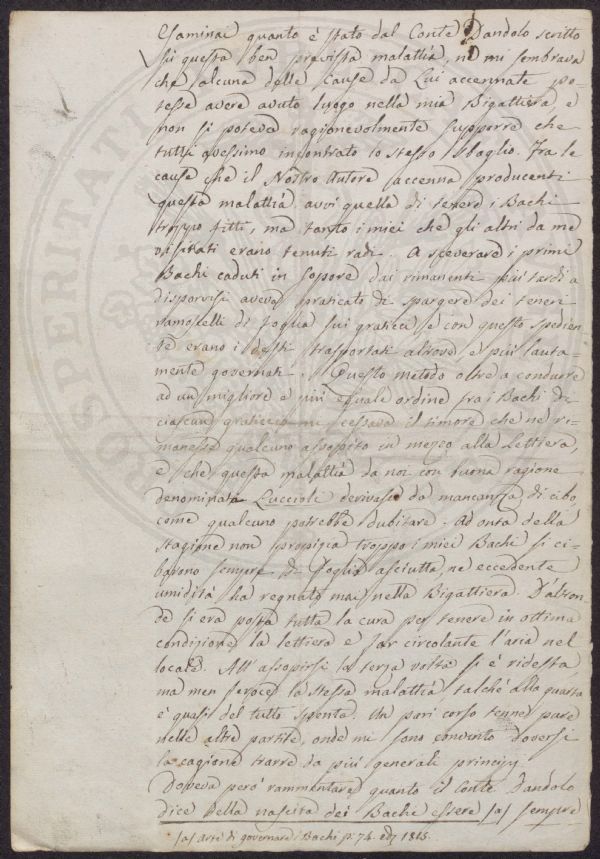 Esaminai quanto è stato dal Conte Dandolo scritto
su questa ben prevista malattia, nè mi sembrava
che alcuna delle cause da Lui accennate po-
tesse avere avuto luogo nella mia Bigattiera, e
non si poteva ragionevolmente supporre che
tutti avessimo incontrato lo stesso sbaglio. Fra le
cause che il Nostro Autore accenna producenti
questa malattia avvi quella di tenere i Bachi
troppo fitti, ma tanto i miei che gli altri da me
visitati erano tenuti radi. A sceverare i primi
Bachi caduti in sopore dai rimanenti più tardi a
disporvisi aveva praticato di spargere dei teneri
ramoscelli di foglia sui graticci e con questo spedien-
te erano i desti trasportati altrove e più lauta-
mente governati. Questo metodo oltre a condurre
ad un migliore e più eguale ordine fra i Bachi di
ciascun graticcio mi cessava il timore che ne ri-
manesse qualcuno assopito in mezzo alla Lettiera,
e che questa malattia da noi con buona ragione
denominata Luccioli derivasse da mancanza di cibo
come qualcuno potrebbe dubitare. Ad onta della
stagione non propizia troppo i miei Bachi si ci-
barono sempre di Foglia asciutta, ne eccedente
umidità ha regnato mai nella Bigattiera. D'alton-
de si era posta tutta la cura per tenere in ottima
condizione la lettiera e far circolante l'aria nel
locale. All'assopirsi la terza volta si è ridesta
ma men feroce la stessa malattia talchè alla quarta
è quasi del tutto spenta. Un pari corso tenne pure
nelle altre partite, onde mi sono convinto doversi
la cagione trarre da più generali principj.
Doveva però rammentare quanto il Conte Dandolo
dice della nascita dei Bachi essere (a) sempre
(a) Arte di governare i Bachi p. 74. ediz 1815.